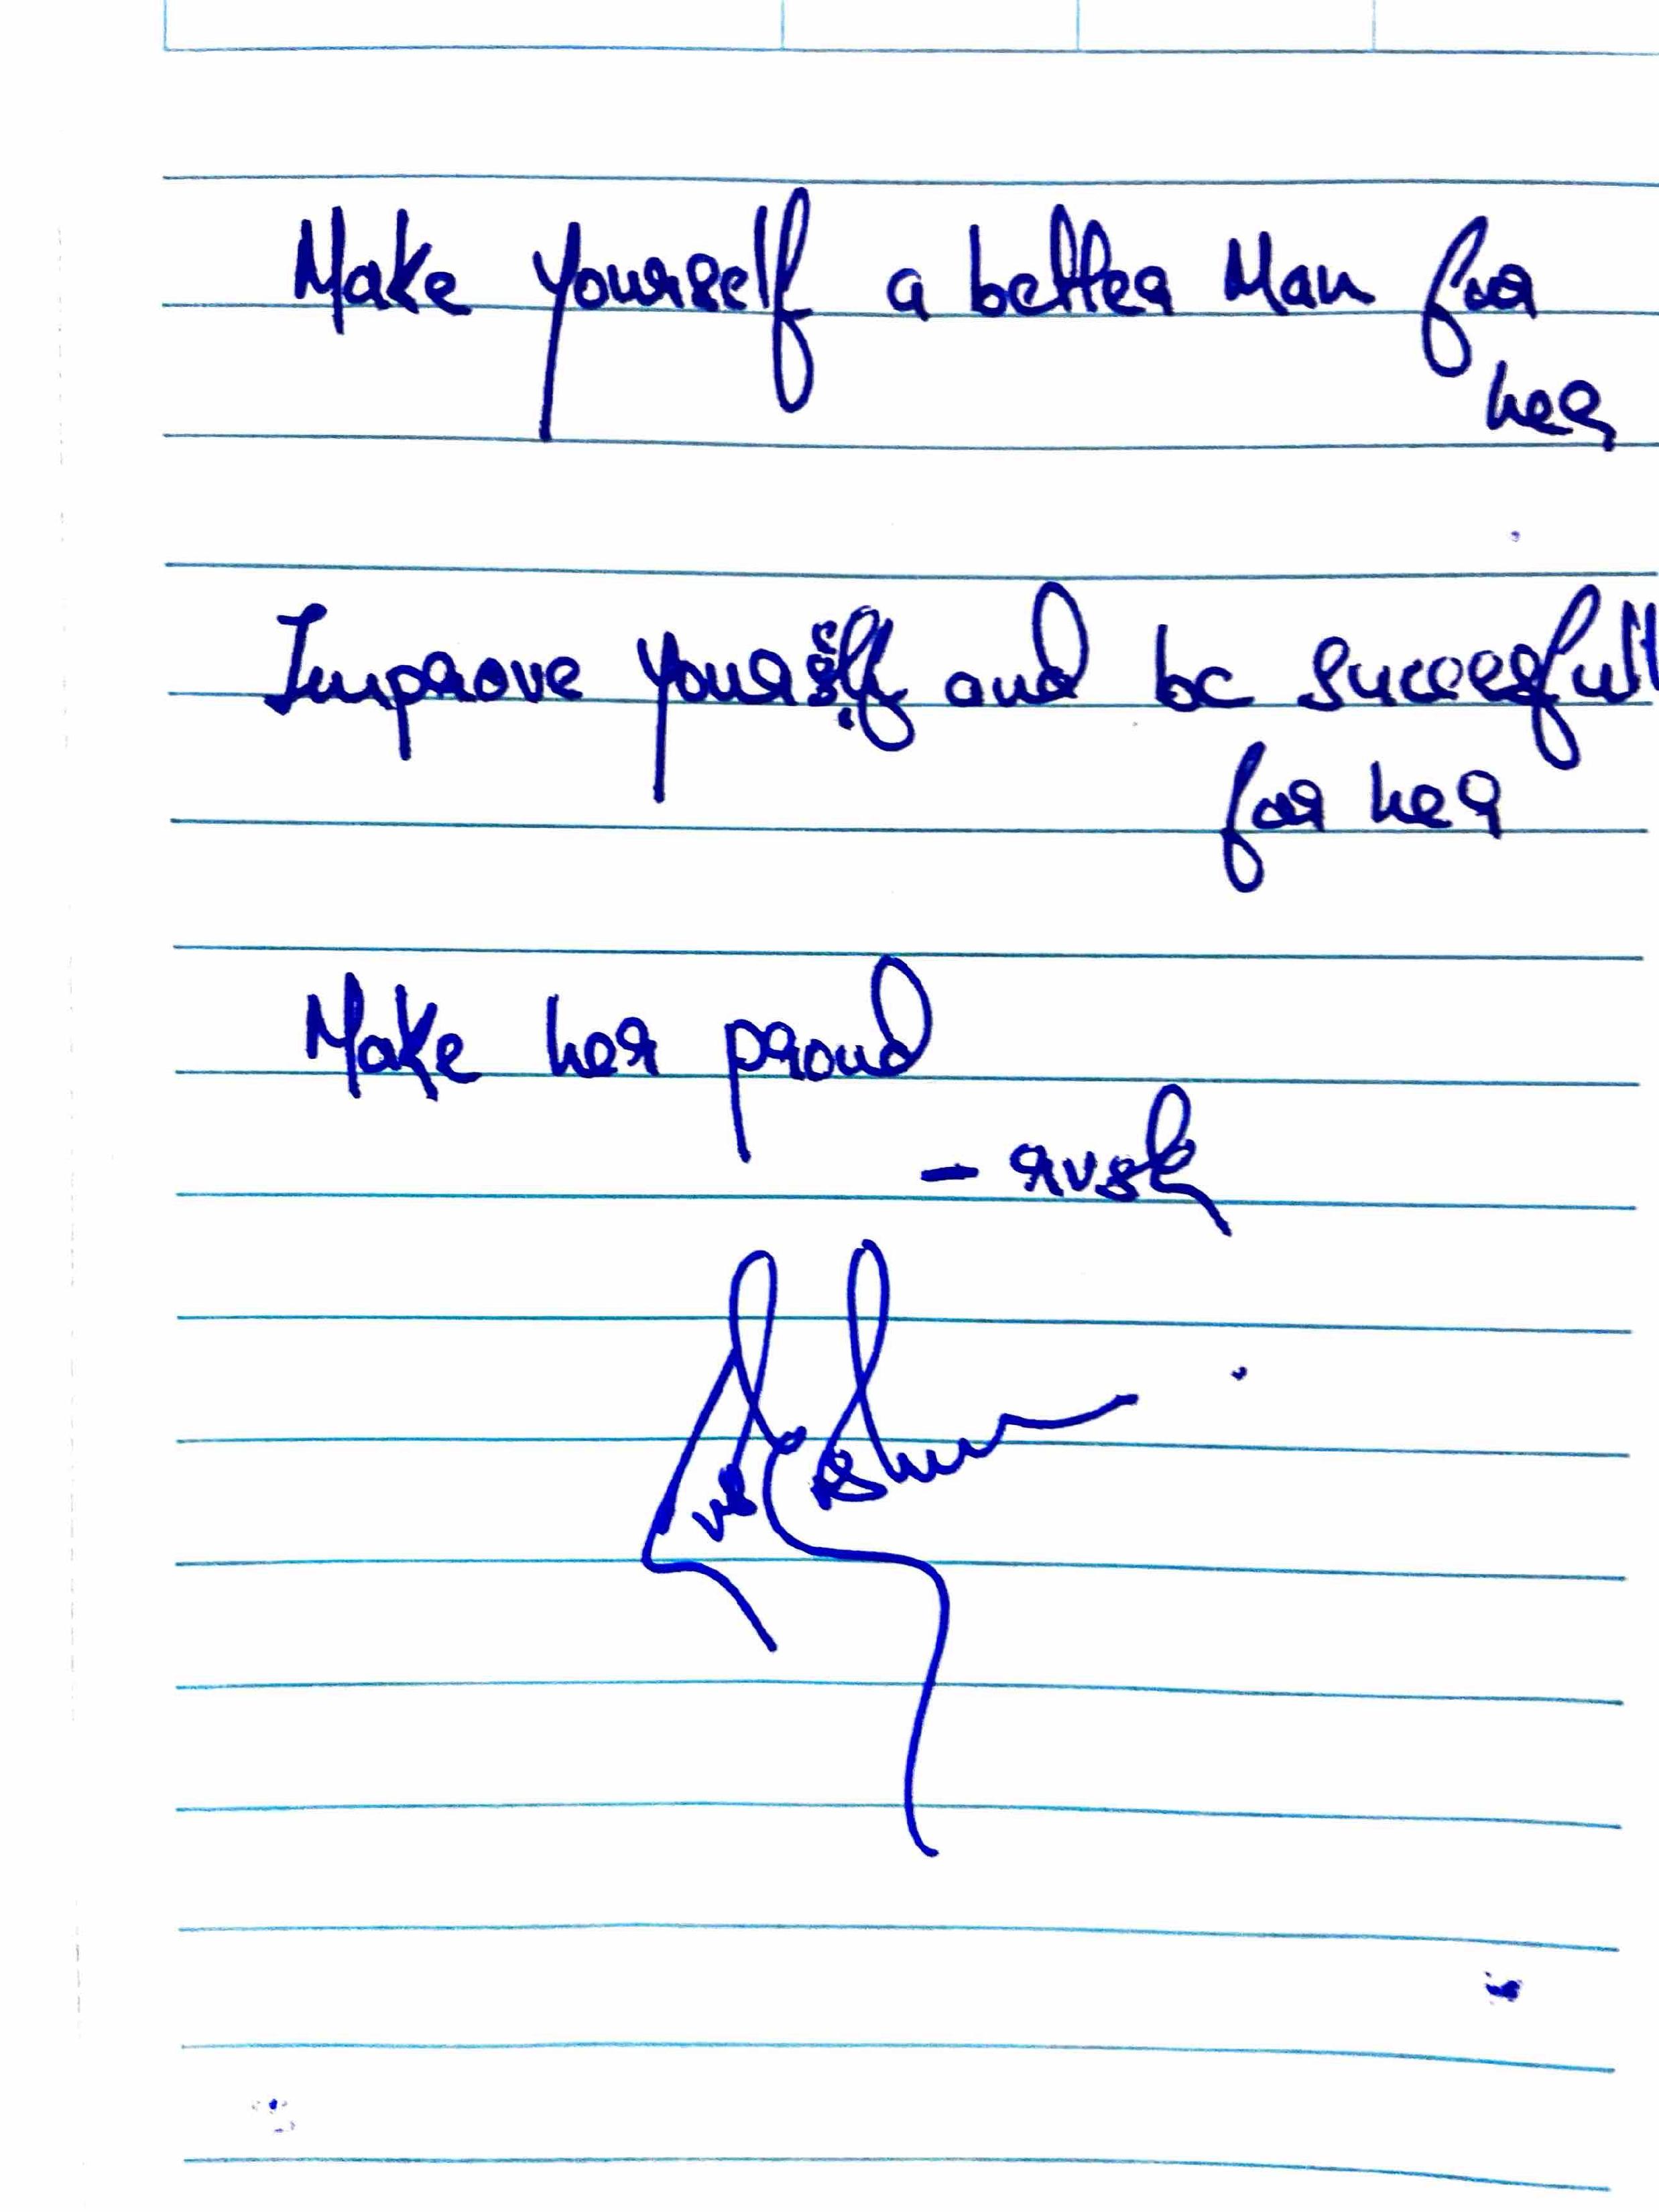 Make yourself a better Man for
her
Improve yourself and be succesfull
for her
Make her proud
- rusk